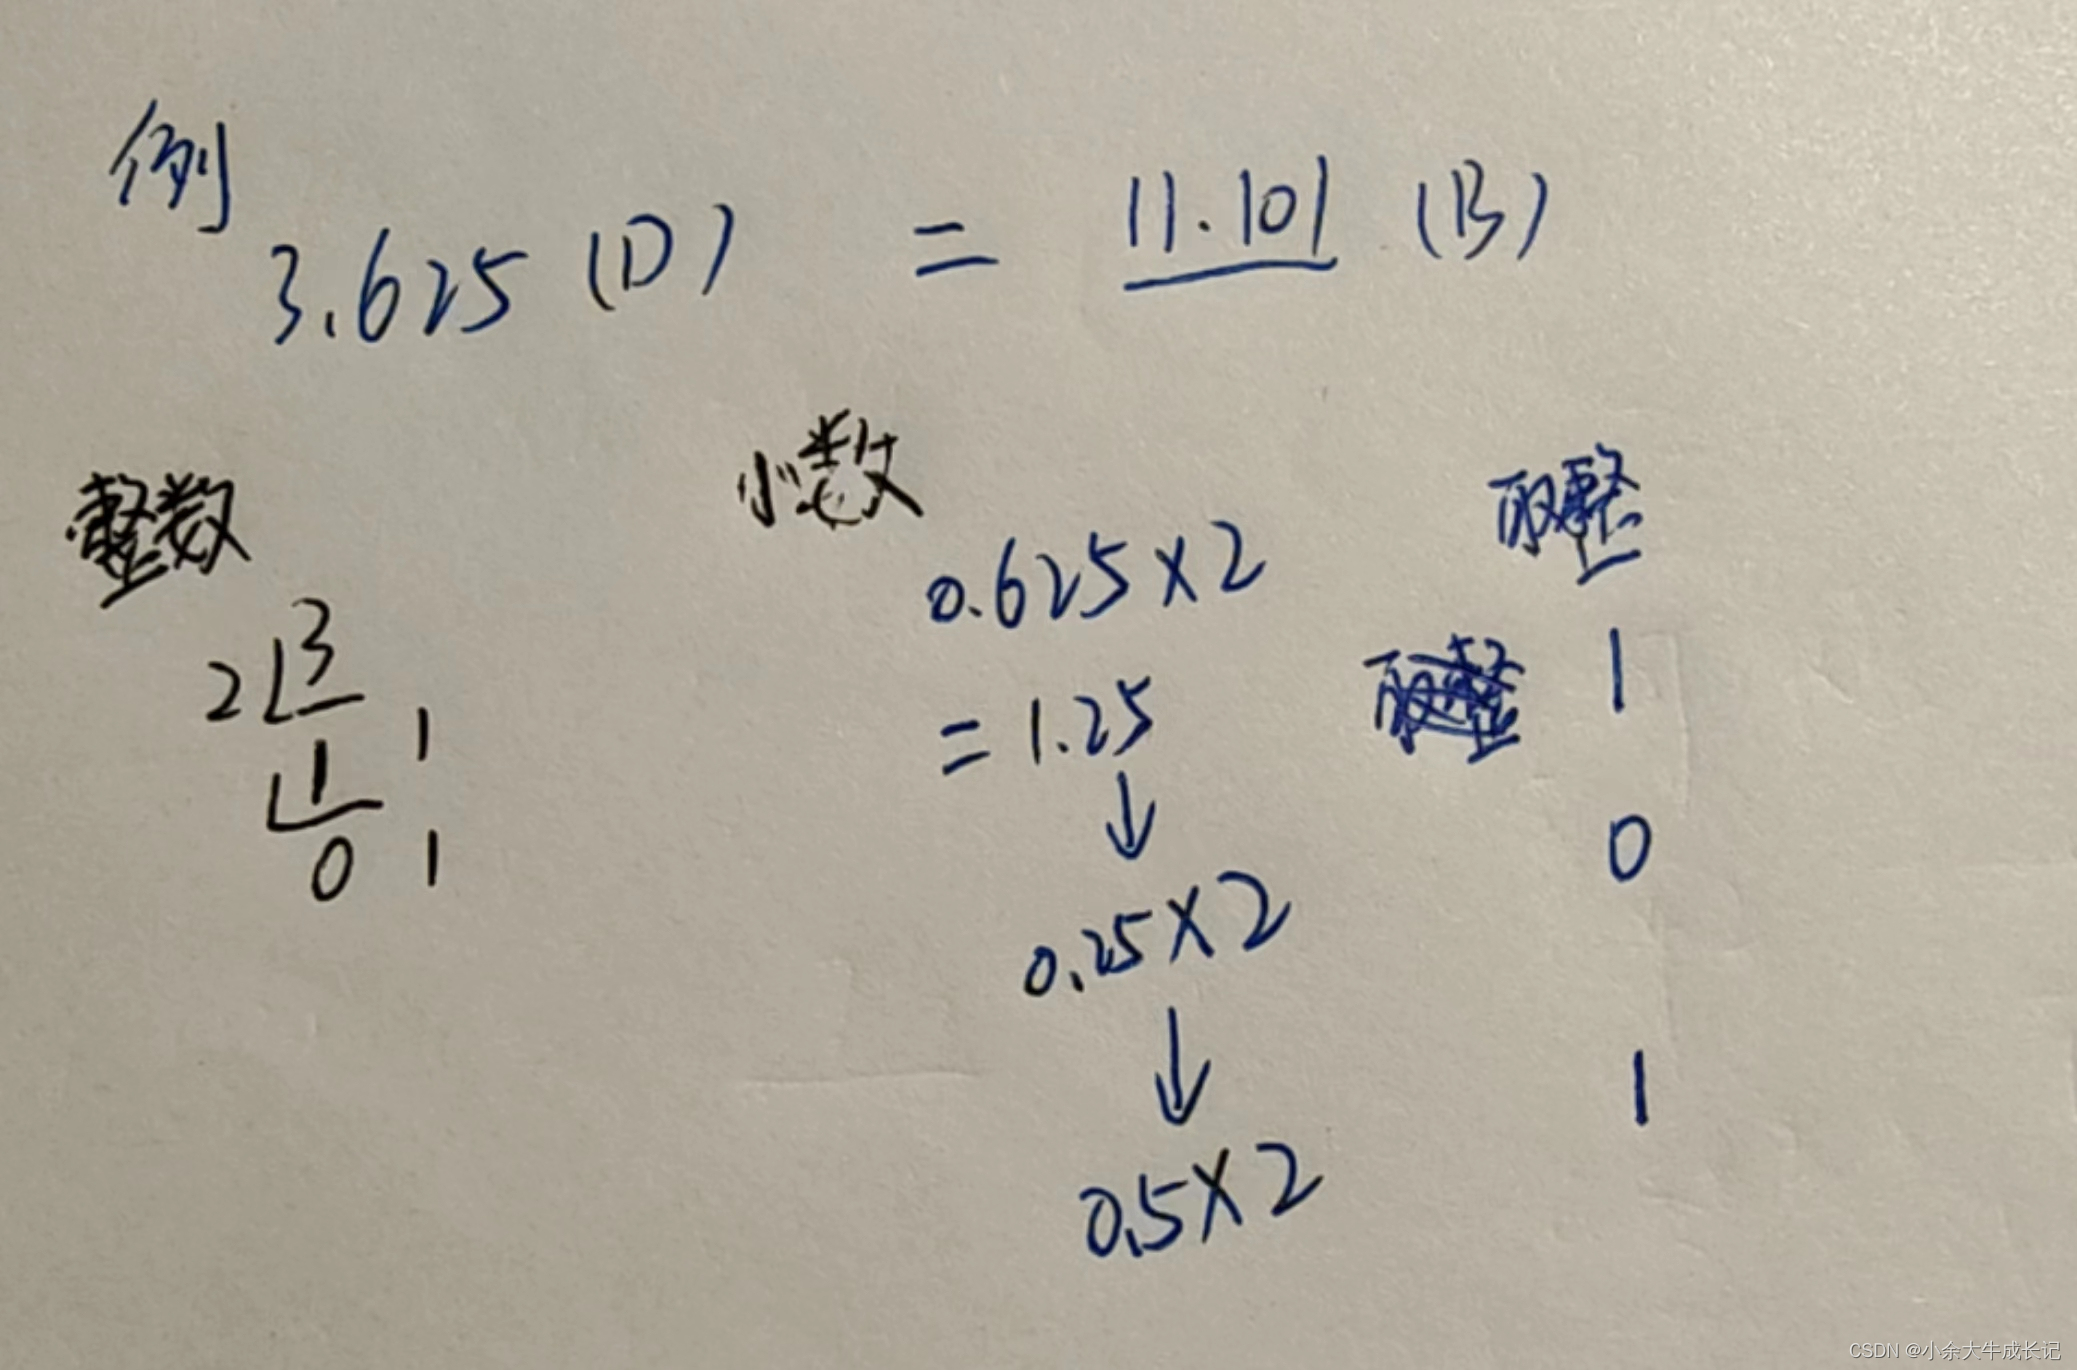 例
3.625 (D) = 11.101 (B)
整数
2 3
1 1
0 1
小数 取整
0.625×2
=1.25 1
0.25×2 0
0.5×2 1
CSDN @小余大牛成长记